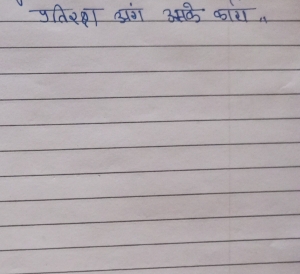 प्रतिरक्षा अंग उसके कार्य "